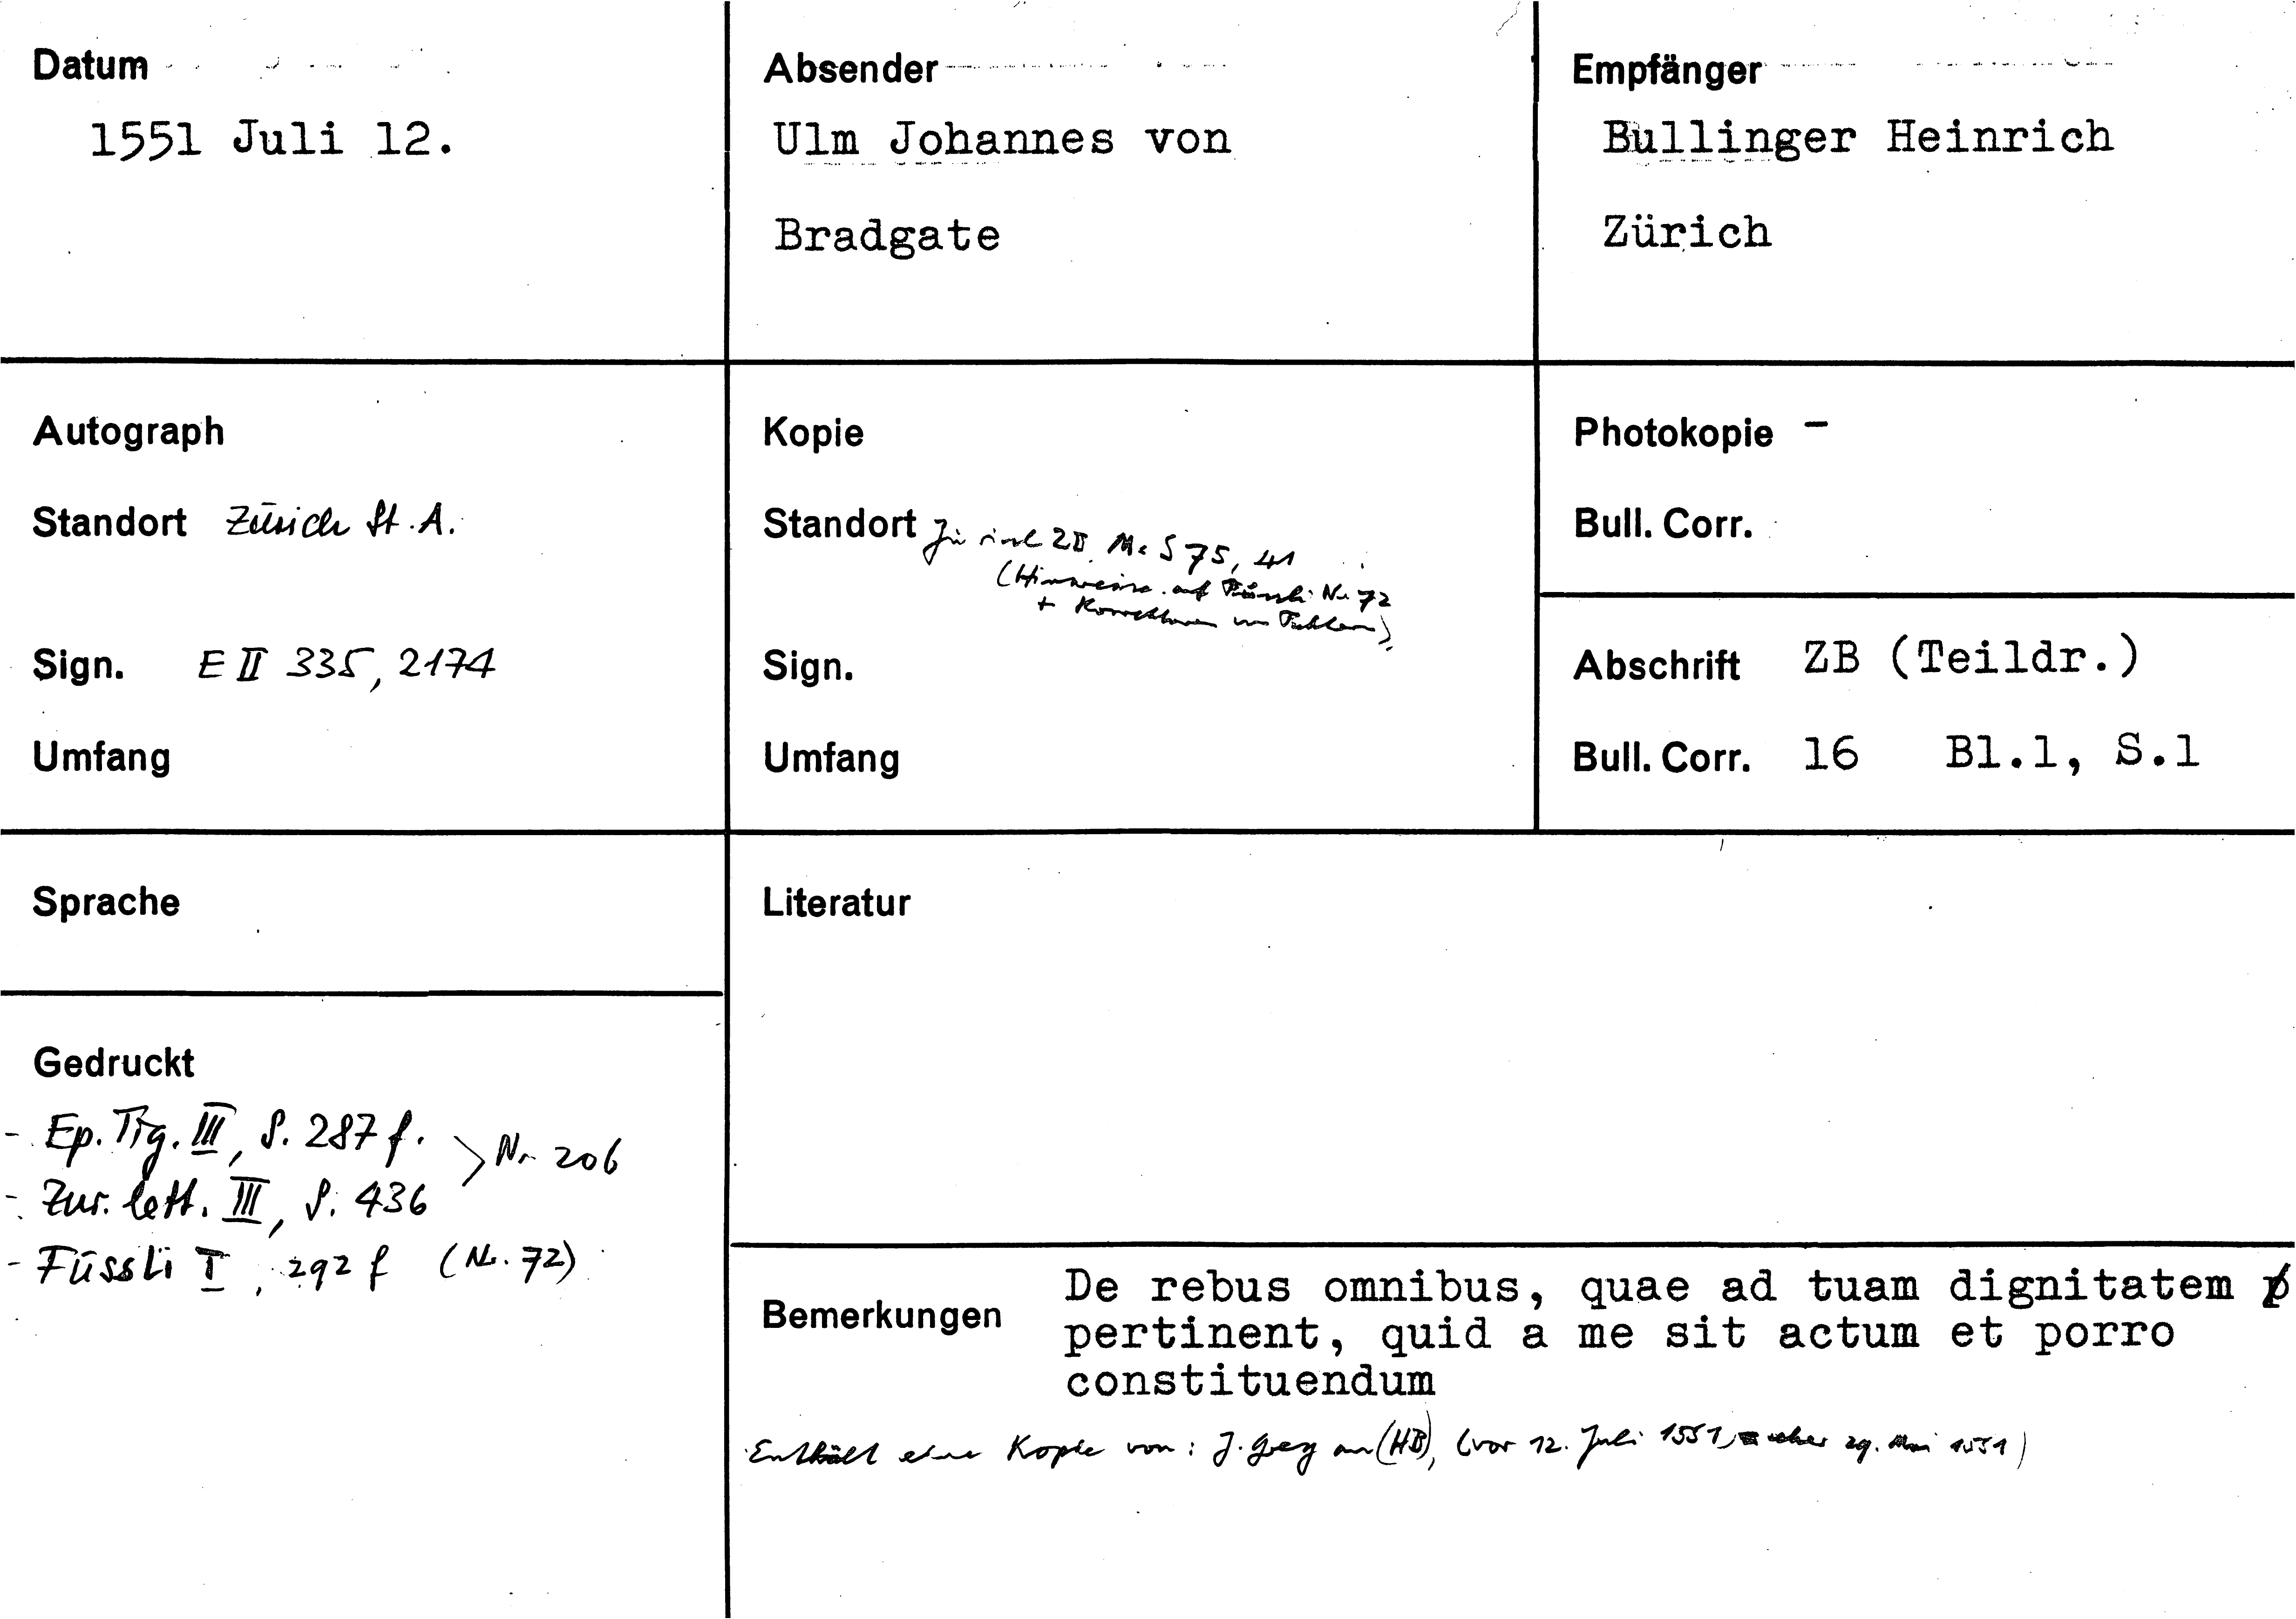 Datum
1551 Juli 12.
Absender
Ulm Johannes von
Bradgate
Empfänger
Bullinger Heinrich
Zürich
Autograph
Standort Zürich St. A.
Sign. E II 335, 2174
Umfang
Kopie
Standort Zürich ZB Ms S 75, 41
(Hinweise auf Füssli Nr. 72
+ Korrekturen von Fehlern)
Sign.
Umfang
Photokopie -
Bull. Corr.
Abschrift ZB (Teildr.)
Bull. Corr. 16 Bl.1, S.1
Sprache
Literatur
Gedruckt
- Ep. Tig. III, S. 287 f. > Nr. 206
- Zur. lett. III, S. 436
- Füssli I, 292 f (Nr. 72)
Bemerkungen
De rebus omnibus, quae ad tuam dignitatem
pertinent, quid a me sit actum et porro
constituendum
Enthält eine Kopie von: J. Grey an (HB), (vor 12. Juli 1551, eher 29. Mai 1551)